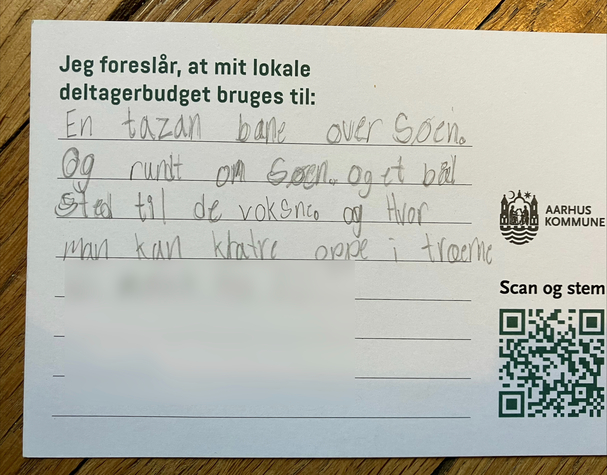 Jeg foreslår, at mit lokale
deltagerbudget bruges til:
En tazan bane over Søen.
Og rundt om Søen. og et bål
sted til de voksne. og Hvor
man kan klatre oppe i træerne
AARHUS
KOMMUNE
Scan og stem